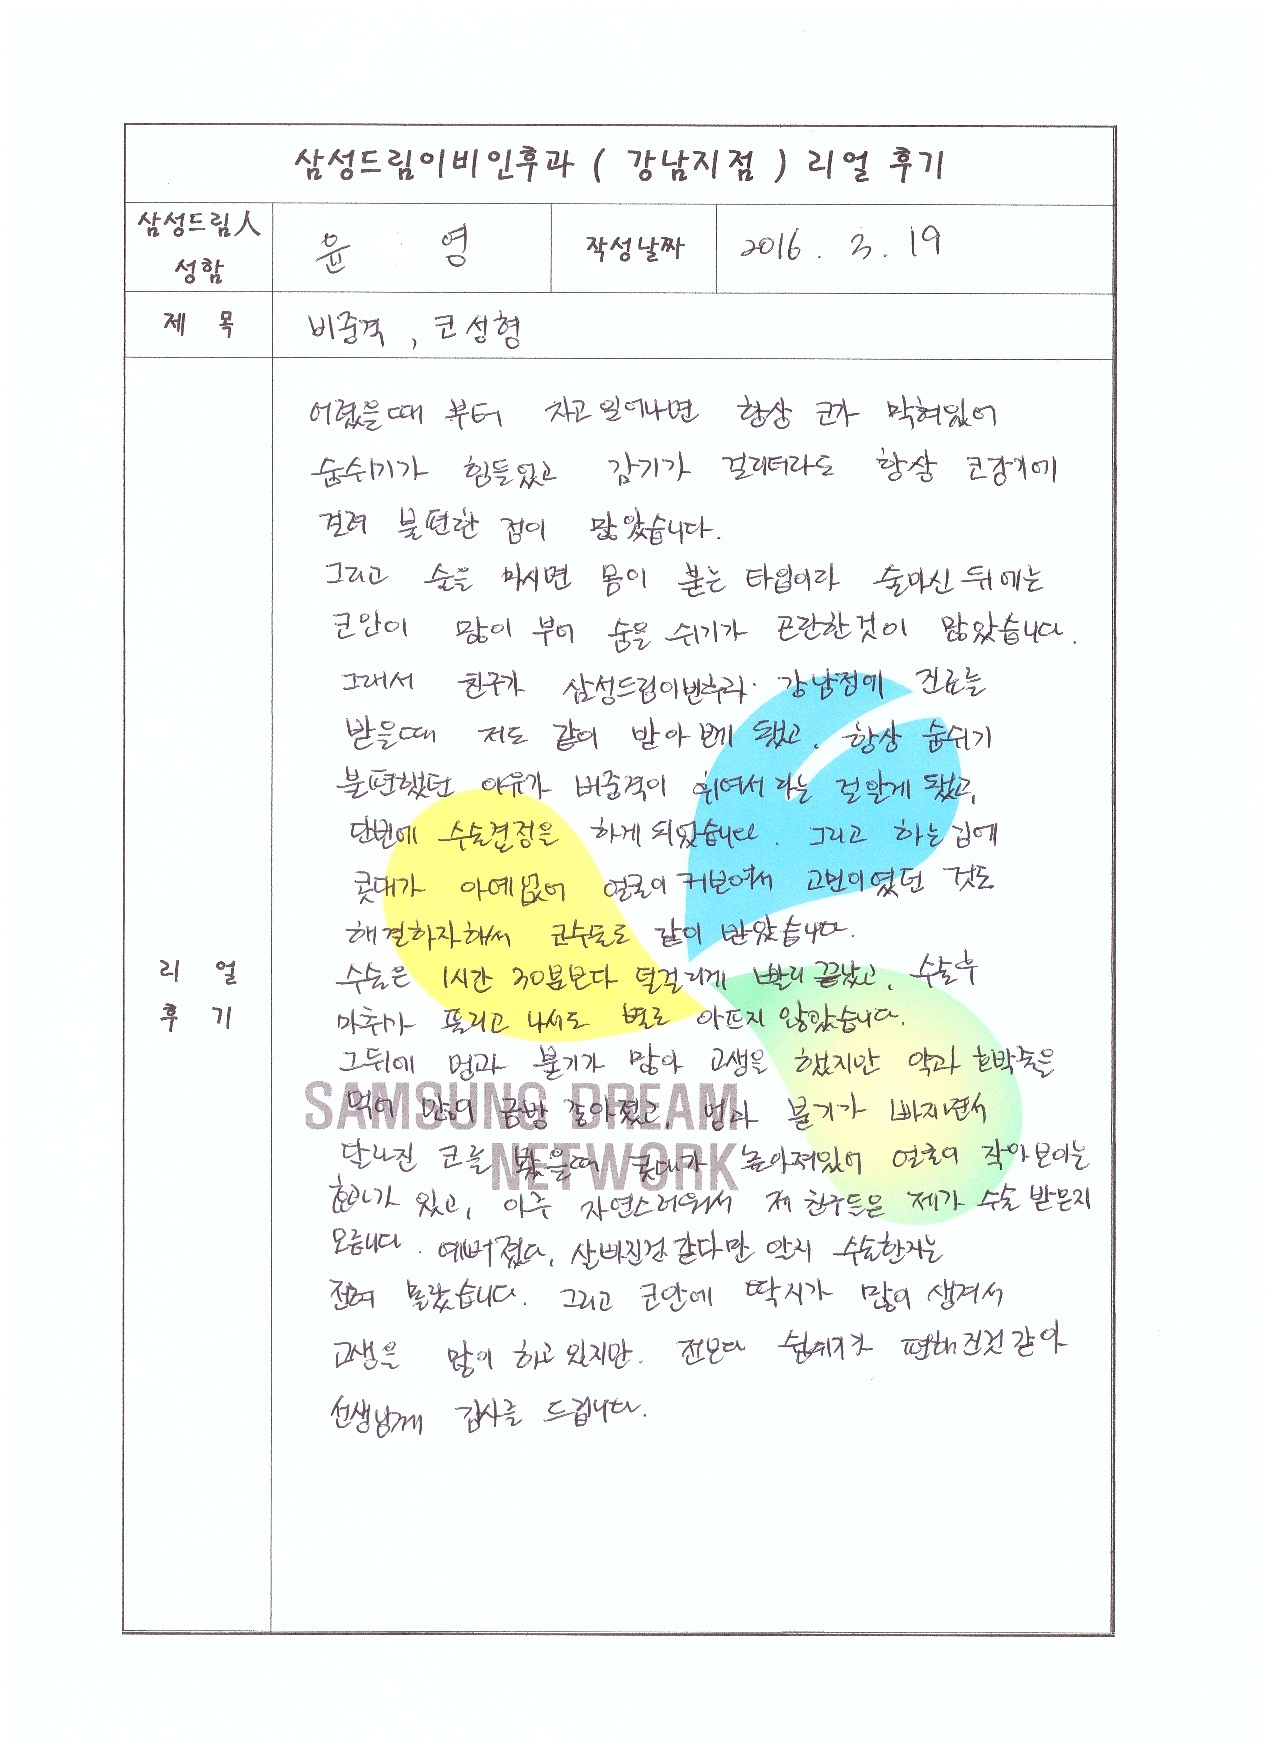 삼성드림이비인후과 ( 강남지점 ) 리얼 후기
삼성드림人 성함
윤 영
작성날짜
2016. 3. 19
제 목
비중격, 코성형
리 얼 후 기
어렸을때 부터 자고 일어나면 항상 코가 막혀있어
숨쉬기가 힘들었고 감기가 걸리더라도 항상 코감기에
걸려 불편한 점이 많았습니다.
그리고 술을 마시면 몸이 붓는 타입이라 술마신 뒤에는
코안이 많이 부어 숨을 쉬기가 곤란한것이 많았습니다.
그래서 친구가 삼성드림이비인후과 강남점에 진료를
받을때 저도 같이 받아 보게 됐고, 항상 숨쉬기
불편했던 이유가 비중격이 휘여서 라는 걸 알게 됐고,
단번에 수술결정을 하게 되었습니다. 그리고 하는김에
콧대가 아예없어 얼굴이 커보여서 고민이였던 것도
해결하자해서 코수술로 같이 받았습니다.
수술은 1시간 30분보다 덜걸리게 빨리 끝났고, 수술후
마취가 풀리고 나서도 별로 아프지 않았습니다.
그뒤에 멍과 붓기가 많아 고생을 했지만 약과 호박즙을
먹어 많이 금방 갈아졌고, 멍과 붓기가 빠지면서
달라진 코를 봤을때 콧대가 높아져있어 얼굴이 작아보이는
효과가 있고, 아주 자연스러워서 제 친구들은 제가 수술 받은지
모릅니다. 예뻐졌다, 살빠진것 같다만 알지 수술한지는
전혀 몰랐습니다. 그리고 코안에 딱지가 많이 생겨서
고생을 많이 하고 있지만, 전보다 숨쉬기가 편해진것 같아
선생님께 감사를 드립니다.
SAMSUNG DREAM
NETWORK